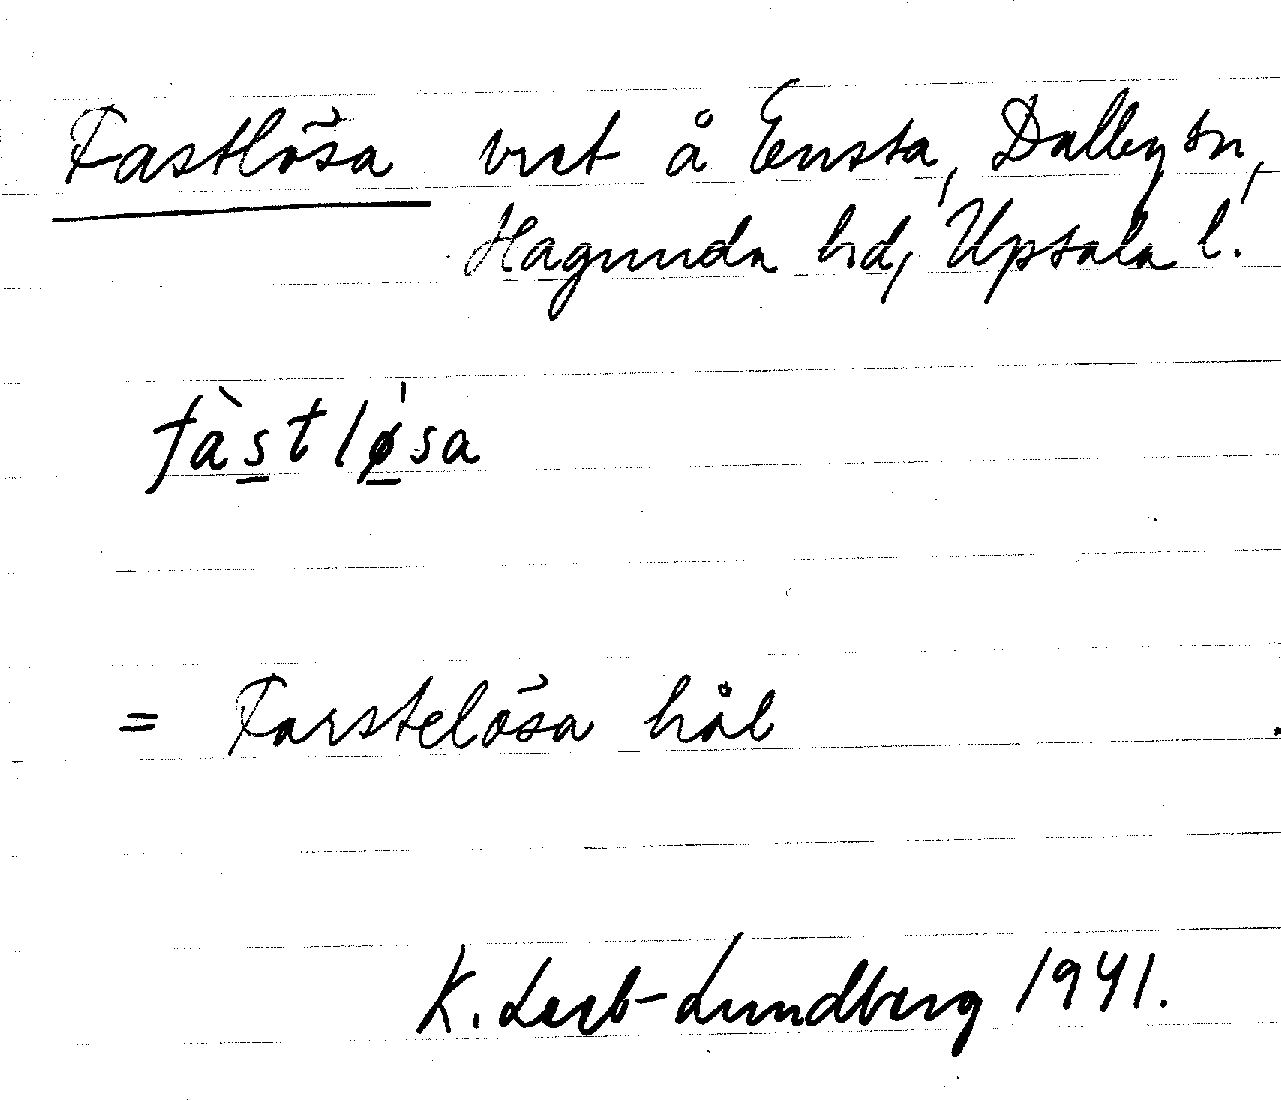 Fastlösa vret å Ensta, Dalby sn,
Hagunda hd, Upsala l.
fàstlø̍sa
= Farstelösa hål
K. Leeb-Lundberg 1941.